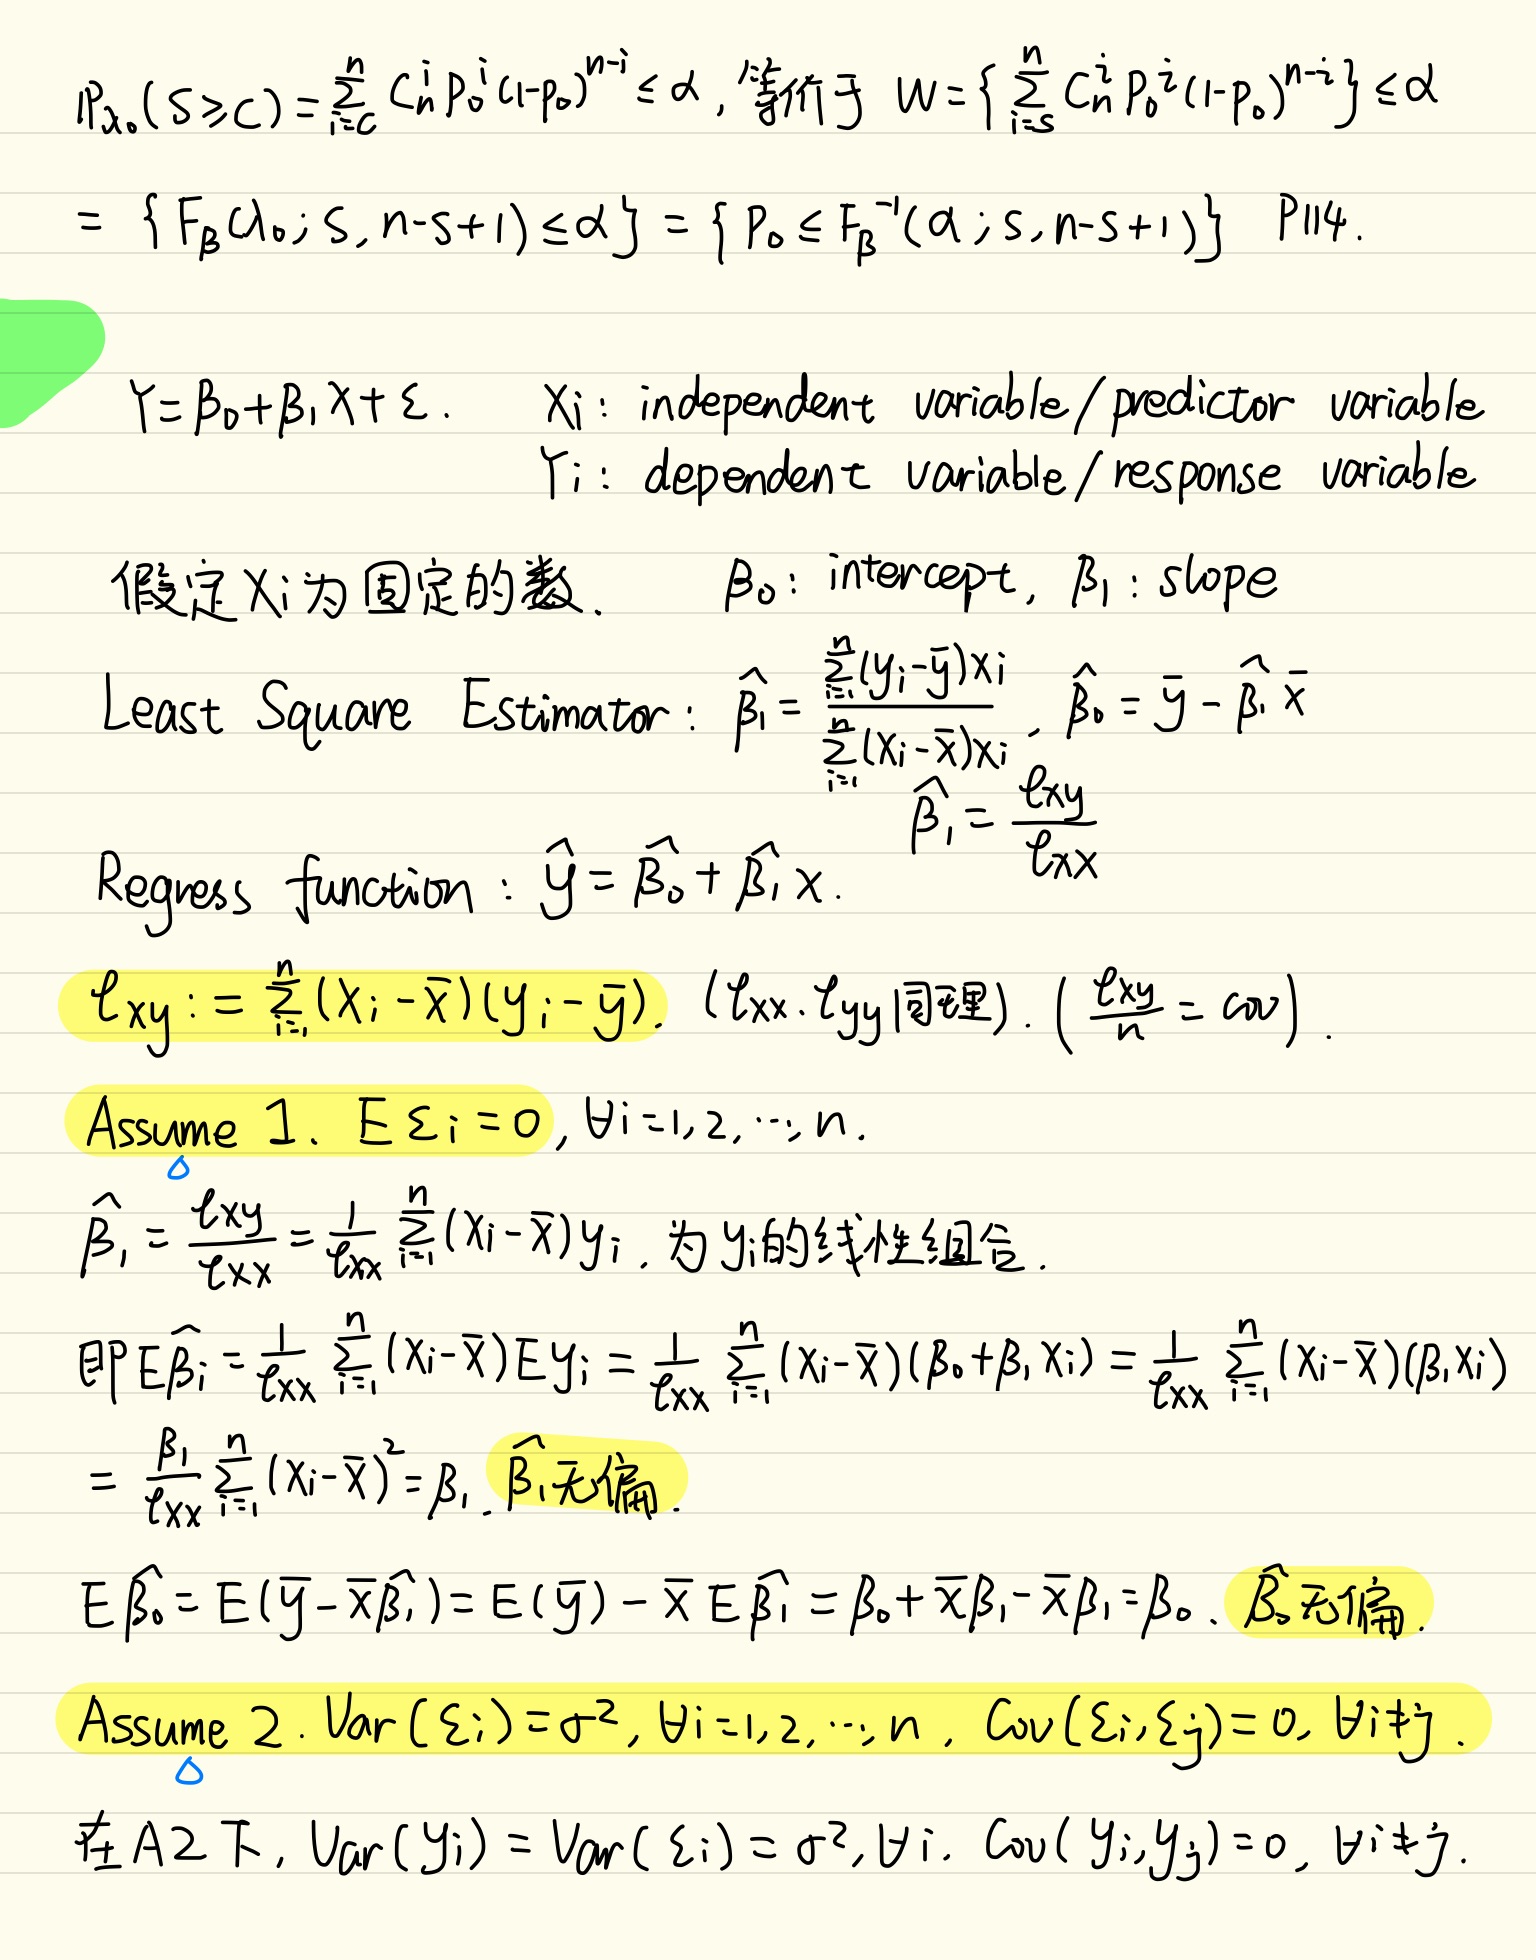 ℙ_{λ₀}(S≥C) = ∑_{i=c}^{n} C_n^i p₀^i (1-p₀)^{n-i} ≤ α, 等价于 W = { ∑_{i=s}^{n} C_n^i p₀^i (1-p₀)^{n-i} } ≤ α
= { F_β(λ₀; s, n-s+1) ≤ α } = { p₀ ≤ F_β^{-1}(α; s, n-s+1) } P114.
Y = β₀ + β₁X + ε. Xi: independent variable/predictor variable
Yi: dependent variable/response variable
假定 Xi 为固定的数. β₀: intercept, β₁: slope
Least Square Estimator: β̂₁ = ∑_{i=1}^{n}(yi - ȳ)xi / ∑_{i=1}^{n}(xi - x̄)xi, β̂₀ = ȳ - β̂₁x̄
β̂₁ = ℓxy / ℓxx
Regress function: ŷ = β̂₀ + β̂₁x.
ℓxy := ∑_{i=1}^{n}(xi - x̄)(yi - ȳ). (ℓxx. ℓyy 同理). (ℓxy / n = cov).
Assume 1. Eεi = 0, ∀i = 1, 2, ⋯, n.
β̂₁ = ℓxy / ℓxx = 1/ℓxx ∑_{i=1}^{n}(xi - x̄)yi. 为 yi 的线性组合.
即 Eβ̂i = 1/ℓxx ∑_{i=1}^{n}(xi - x̄)Eyi = 1/ℓxx ∑_{i=1}^{n}(xi - x̄)(β₀ + β₁xi) = 1/ℓxx ∑_{i=1}^{n}(xi - x̄)(β₁xi)
= β₁/ℓxx ∑_{i=1}^{n}(xi - x̄)² = β₁. β̂₁ 无偏.
Eβ̂₀ = E(ȳ - x̄β̂₁) = E(ȳ) - x̄Eβ̂₁ = β₀ + x̄β₁ - x̄β₁ = β₀. β̂₀ 无偏.
Assume 2. Var(εi) = σ², ∀i = 1, 2, ⋯, n. Cov(εi, εj) = 0, ∀i ≠ j.
在 A2 下, Var(yi) = Var(εi) = σ², ∀i. Cov(yi, yj) = 0, ∀i ≠ j.